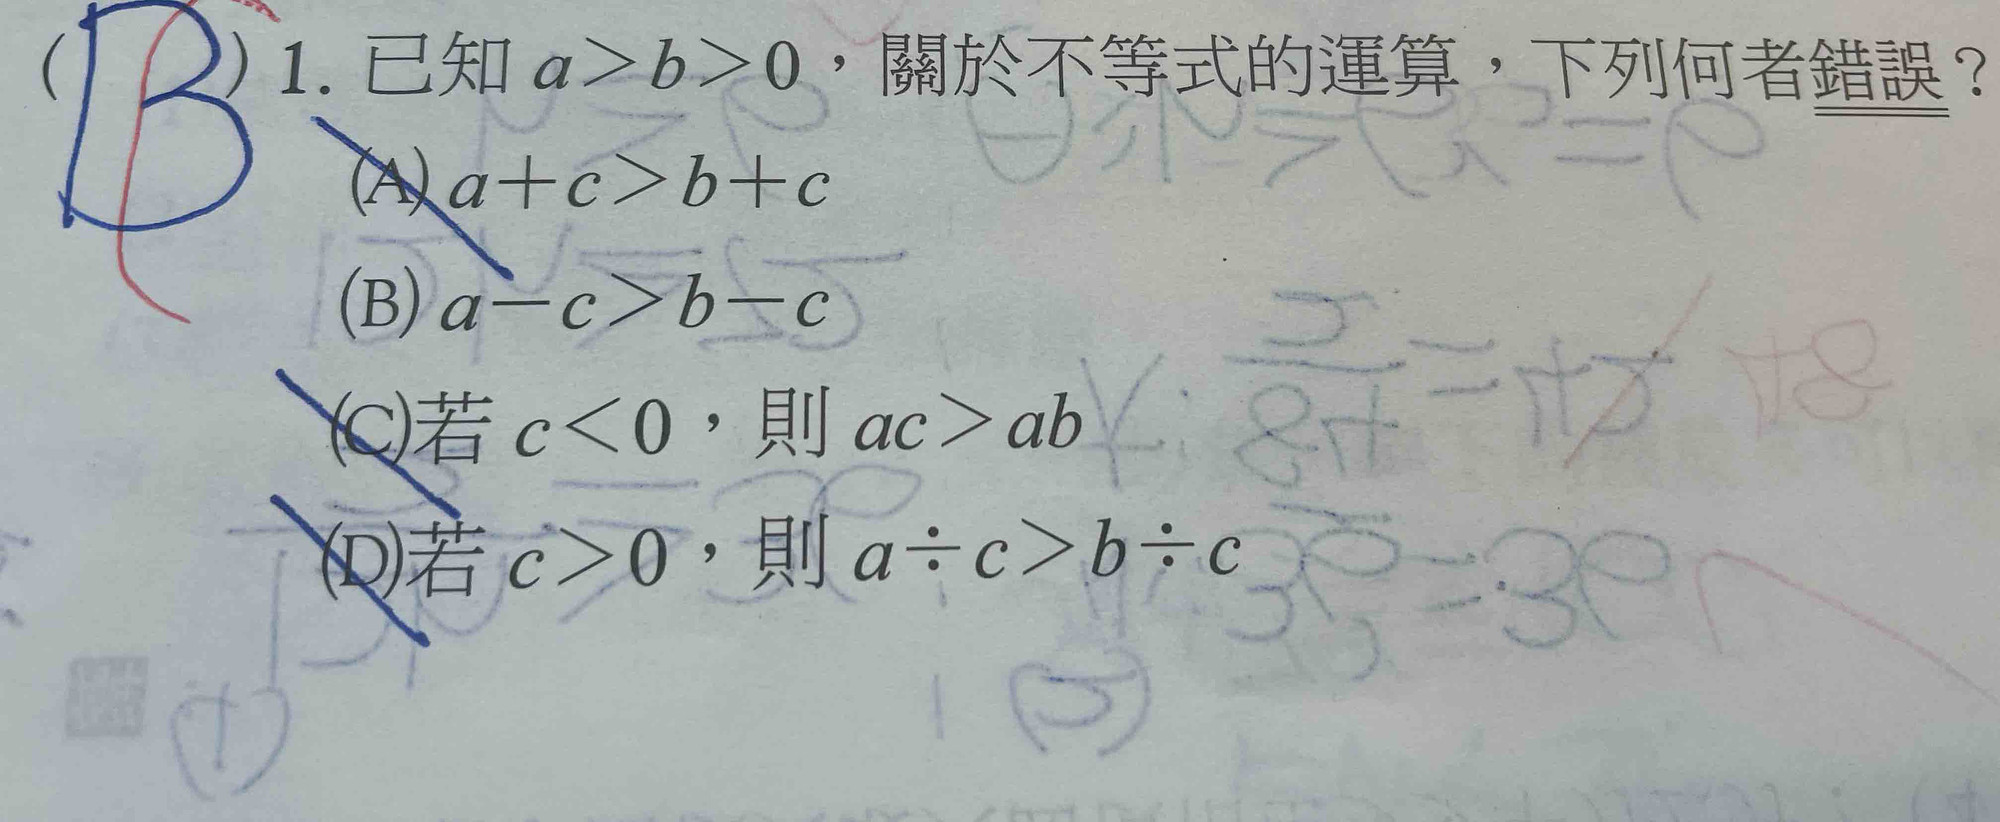 (B) 1. 已知 a>b>0，關於不等式的運算，下列何者錯誤？
(A) a+c>b+c
(B) a-c>b-c
(C)若 c<0，則 ac>ab
(D)若 c>0，則 a÷c>b÷c